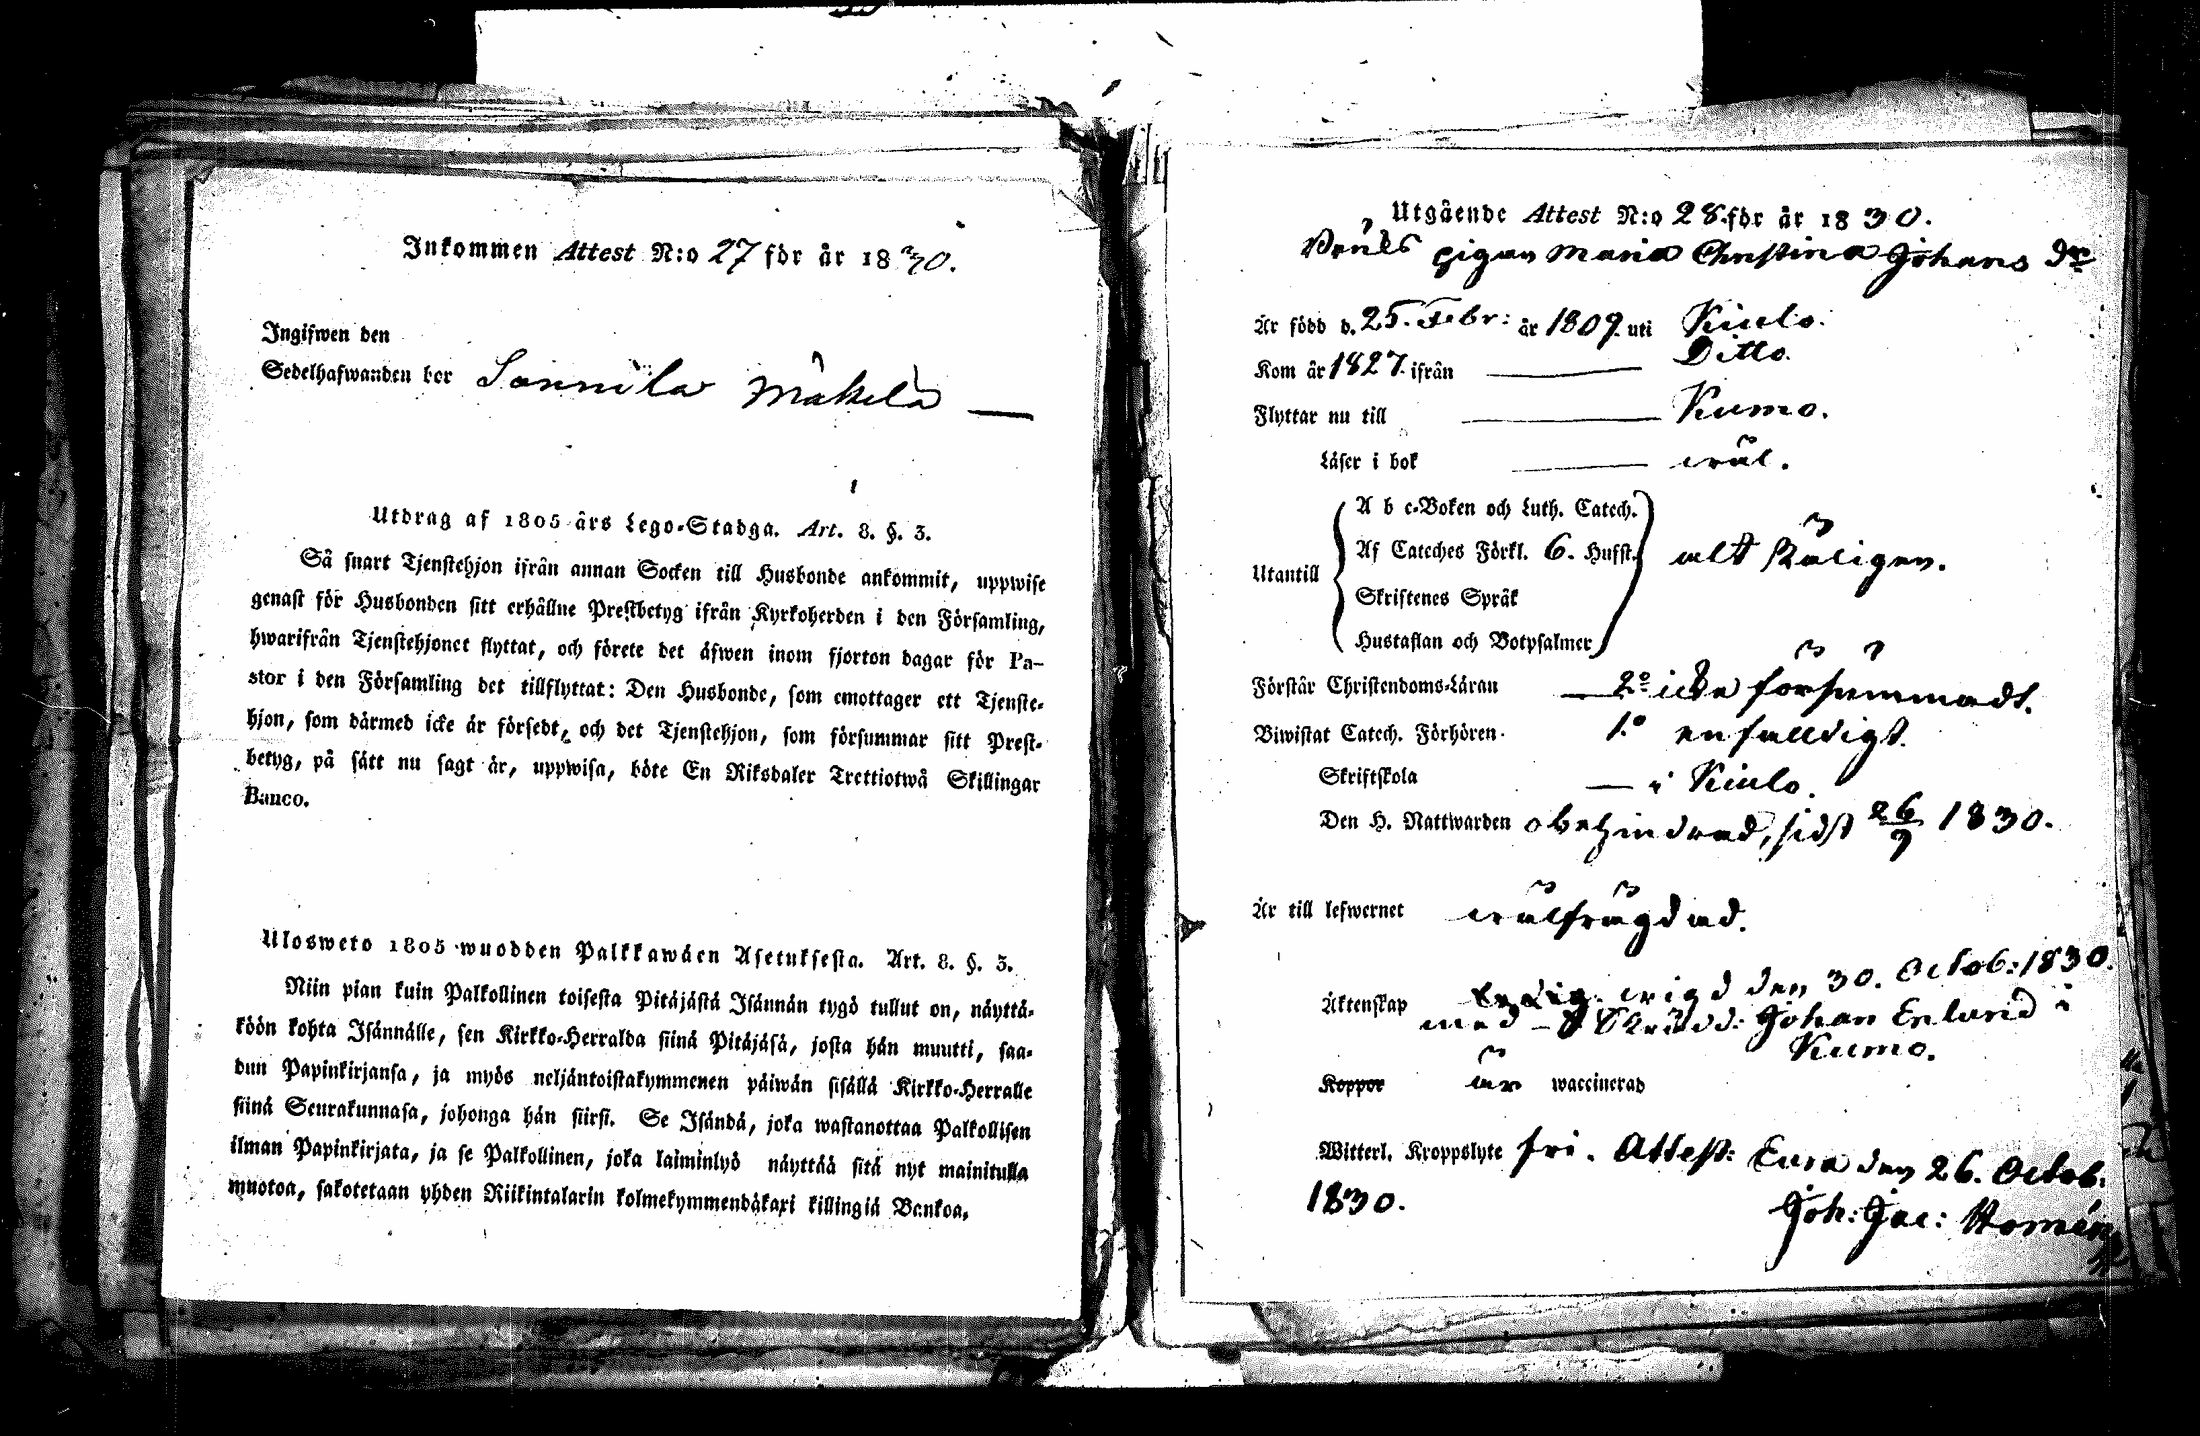 Inkommen Attest N:o 27 för år 1830.
Ingifwen den
Sedelhafwanden bor Sannila Mäkelä
Utdrag af 1805 års Lego-Stadga. Art. 8. §. 3.
Så snart Tjenstehjon ifrån annan Socken till Husbonde ankommit, uppwise
genast för Husbonden sitt erhållne Prestbetyg ifrån Kyrkoherden i den Församling,
hwarifrån Tjenstehjonet flyttat, och förete det äfwen inom fjorton dagar för Pa-
stor i den Församling det tillflyttat: Den Husbonde, som emottager ett Tjenste-
hjon, som därmed icke är försedt, och det Tjenstehjon, som försummar sitt Prest-
betyg, på sätt nu sagt är, uppwisa, böte En Riksdaler Trettiotwå Skillingar
Banco.
Ulosweto 1805 wuodden Palkkawäen Asetuksesta. Art. 8. §. 3.
Niin pian kuin Palkollinen toisesta Pitäjästä Isännän tygö tullut on, näyttä-
köön kohta Isännälle, sen Kirkko-Herralda siinä Pitäjäsä, josta hän muutti, saa-
dun Papinkirjansa, ja myös neljäntoistakymmenen päiwän sisällä Kirkko-Herralle
siinä Seurakunnasa, johonga hän siirsi. Se Isändä, joka wastanottaa Palkollisen
ilman Papinkirjata, ja se Palkollinen, joka laiminlyö näyttää sitä nyt mainitulla
muotoa, sakotetaan yhden Riikintalarin kolmekymmendäkaxi killingiä Bankoa.
Utgående Attest N:o 28 för år 1830.
pigan Maria Christina Johans dr
Är född d. 25. Febr: år 1809. uti Kiulo.
Kom år 1827. ifrån Ditto.
Flyttar nu till Kumo.
Läser i bok wäl.
Utantill
A b c-Boken och Luth. Catech.
Af Cateches Förkl. 6. Hufst. alt skäligen.
Skriftenes Språk
Hustaflan och Botpsalmer
Förstår Christendoms-Läran 2:o icke försummadt.
Biwistat Catech. Förhören 1:o enfalldigt.
Skriftskola — i Kiulo.
Den H. Nattwarden obehindrad, sidst 26/9 1830.
Är till lefwernet wälfrägdad.
Äktenskap ledig. wigd den 30. Octob: 1830.
med Skrädd: Johan Enlund i
Kumo.
Koppor är waccinerad
Witterl. Kroppslyte fri. Attest: Eura den 26. Octob.
1830.
Joh: Jac: Homén